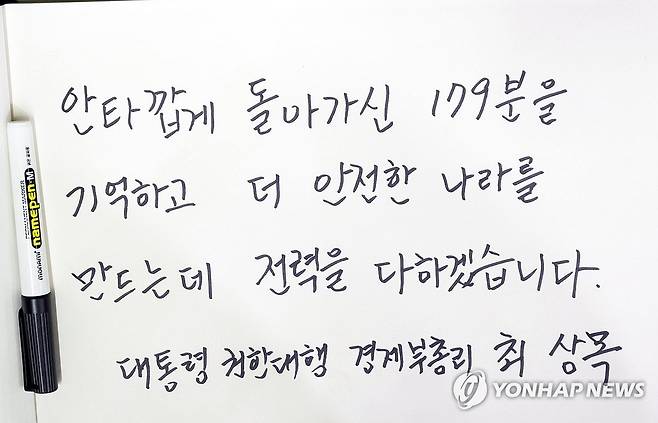 안타깝게 돌아가신 179분을
기억하고 더 안전한 나라를
만드는데 전력을 다하겠습니다.
대통령 권한대행 경제부총리 최 상목
monami namepen·M
YONHAP NEWS